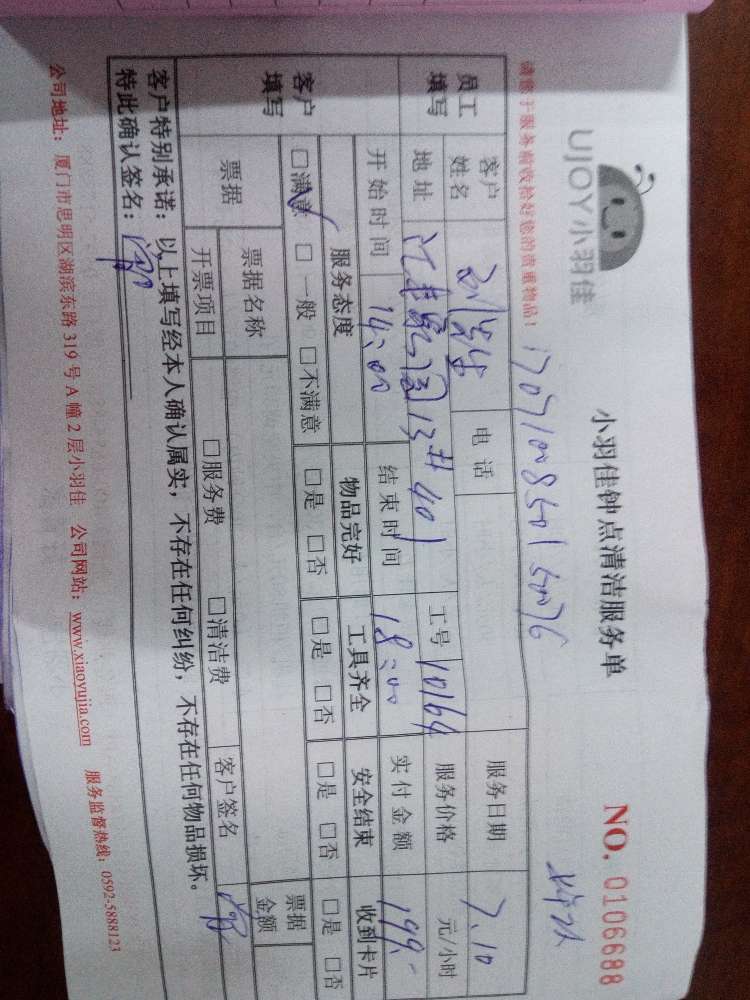 UJOY小羽佳
小羽佳钟点清洁服务单
NO. 0106688
请您于服务前收拾好您的贵重物品！
员工填写
客户姓名
电话
服务日期 7.10
地址 13#401
工号 10164
服务价格 元/小时
开始时间 14:00
结束时间 18:00
实付金额 199.-
客户填写
服务态度 物品完好 工具齐全 安全结束 收到卡片
□满意 □一般 □不满意 □是 □否 □是 □否 □是 □否 □是 □否
票据
票据名称
票据金额
开票项目 □服务费 □清洁费 客户签名
客户特别承诺：以上填写经本人确认属实，不存在任何纠纷，不存在任何物品损坏。
特此确认签名：
公司地址：厦门市思明区湖滨东路 319 号 A 幢 2 层小羽佳 公司网站：www.xiaoyujia.com 服务监督热线：0592-5888123